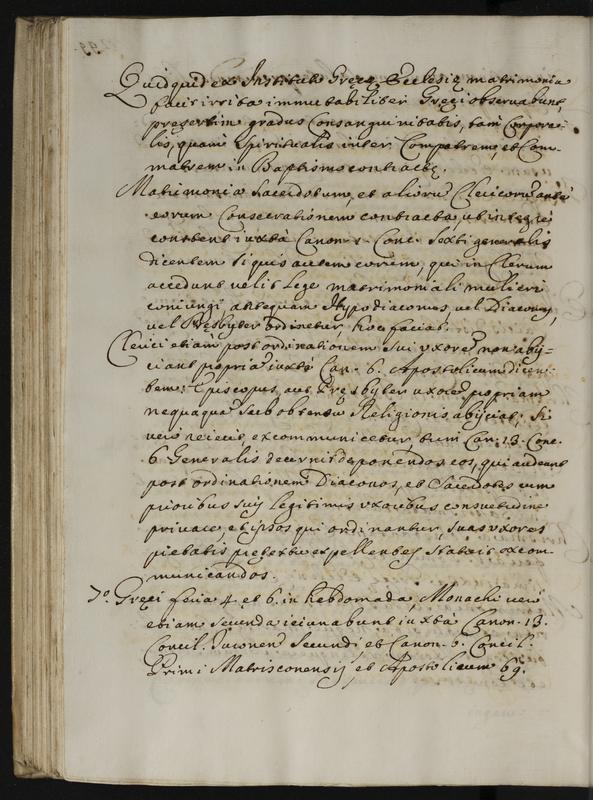 Quidquid ex Institut. Gręcę Ecclesię matrimonia
facit irrita immutabiliter Gręci observabunt,
pręsertim gradus Consanguinitatis, tam Corpora-
lis, quam Spiritualis inter Compatrem, et Com-
matrem in Baptismo contractę.
Matrimonia Sacerdotum, et aliorũ Clericorũ ante
eorum Consecrationem contracta, ut integrè
constent iuxtà Canon. Conc. Sexti generalis
dicentem Si quis autem eorum, qui in Clerum
accedunt velit Lege matrimoniali mulieri
coniungi, antequam Hypodiaconus, vel Diaconus,
vel Presbyter ordinetur, hoc faciat.
Clerici etiam post ordinationem sui uxorẽ non abij-
ciant propriã iuxtà Can. 6. Apostolicum dicen-
tem: Episcopus, aut Pręsbyter uxorẽ propriam
nequaquã sub obtentu Religionis abijciat, Si
verò reiecit excommunicetur tum Can. 13. Conc.
6. Generalis decernit deponendos eos, qui audeunt
post ordinationem Diaconos, et Sacerdotes cum
prioribus suis legitimis uxoribus consuetudine
privare, et ipsos qui ordinantur, suas uxores
pietatis pretextu expellentes Statuit excom-
municandos.
7.º Gręci feria 4. et 6. in hebdomada, Monachi verò
etiam Secunda ieiunabunt iuxtà Canon. 13.
Concil. Turonen. Secundi et Canon. 9. Concil.
Primi Matrisconensis, et Apostolicum 69.